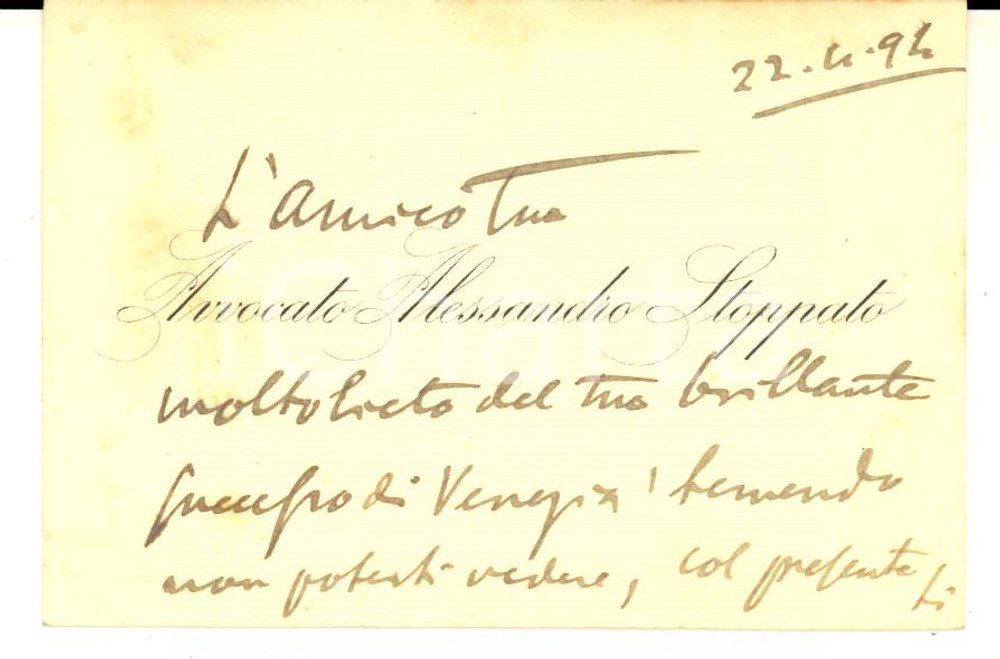 22.4.94
L'amico tuo
Avvocato Alessandro Stoppato
molto lieto del tuo brillante
successo di Venezia, temendo
non poterti vedere, col presente ti